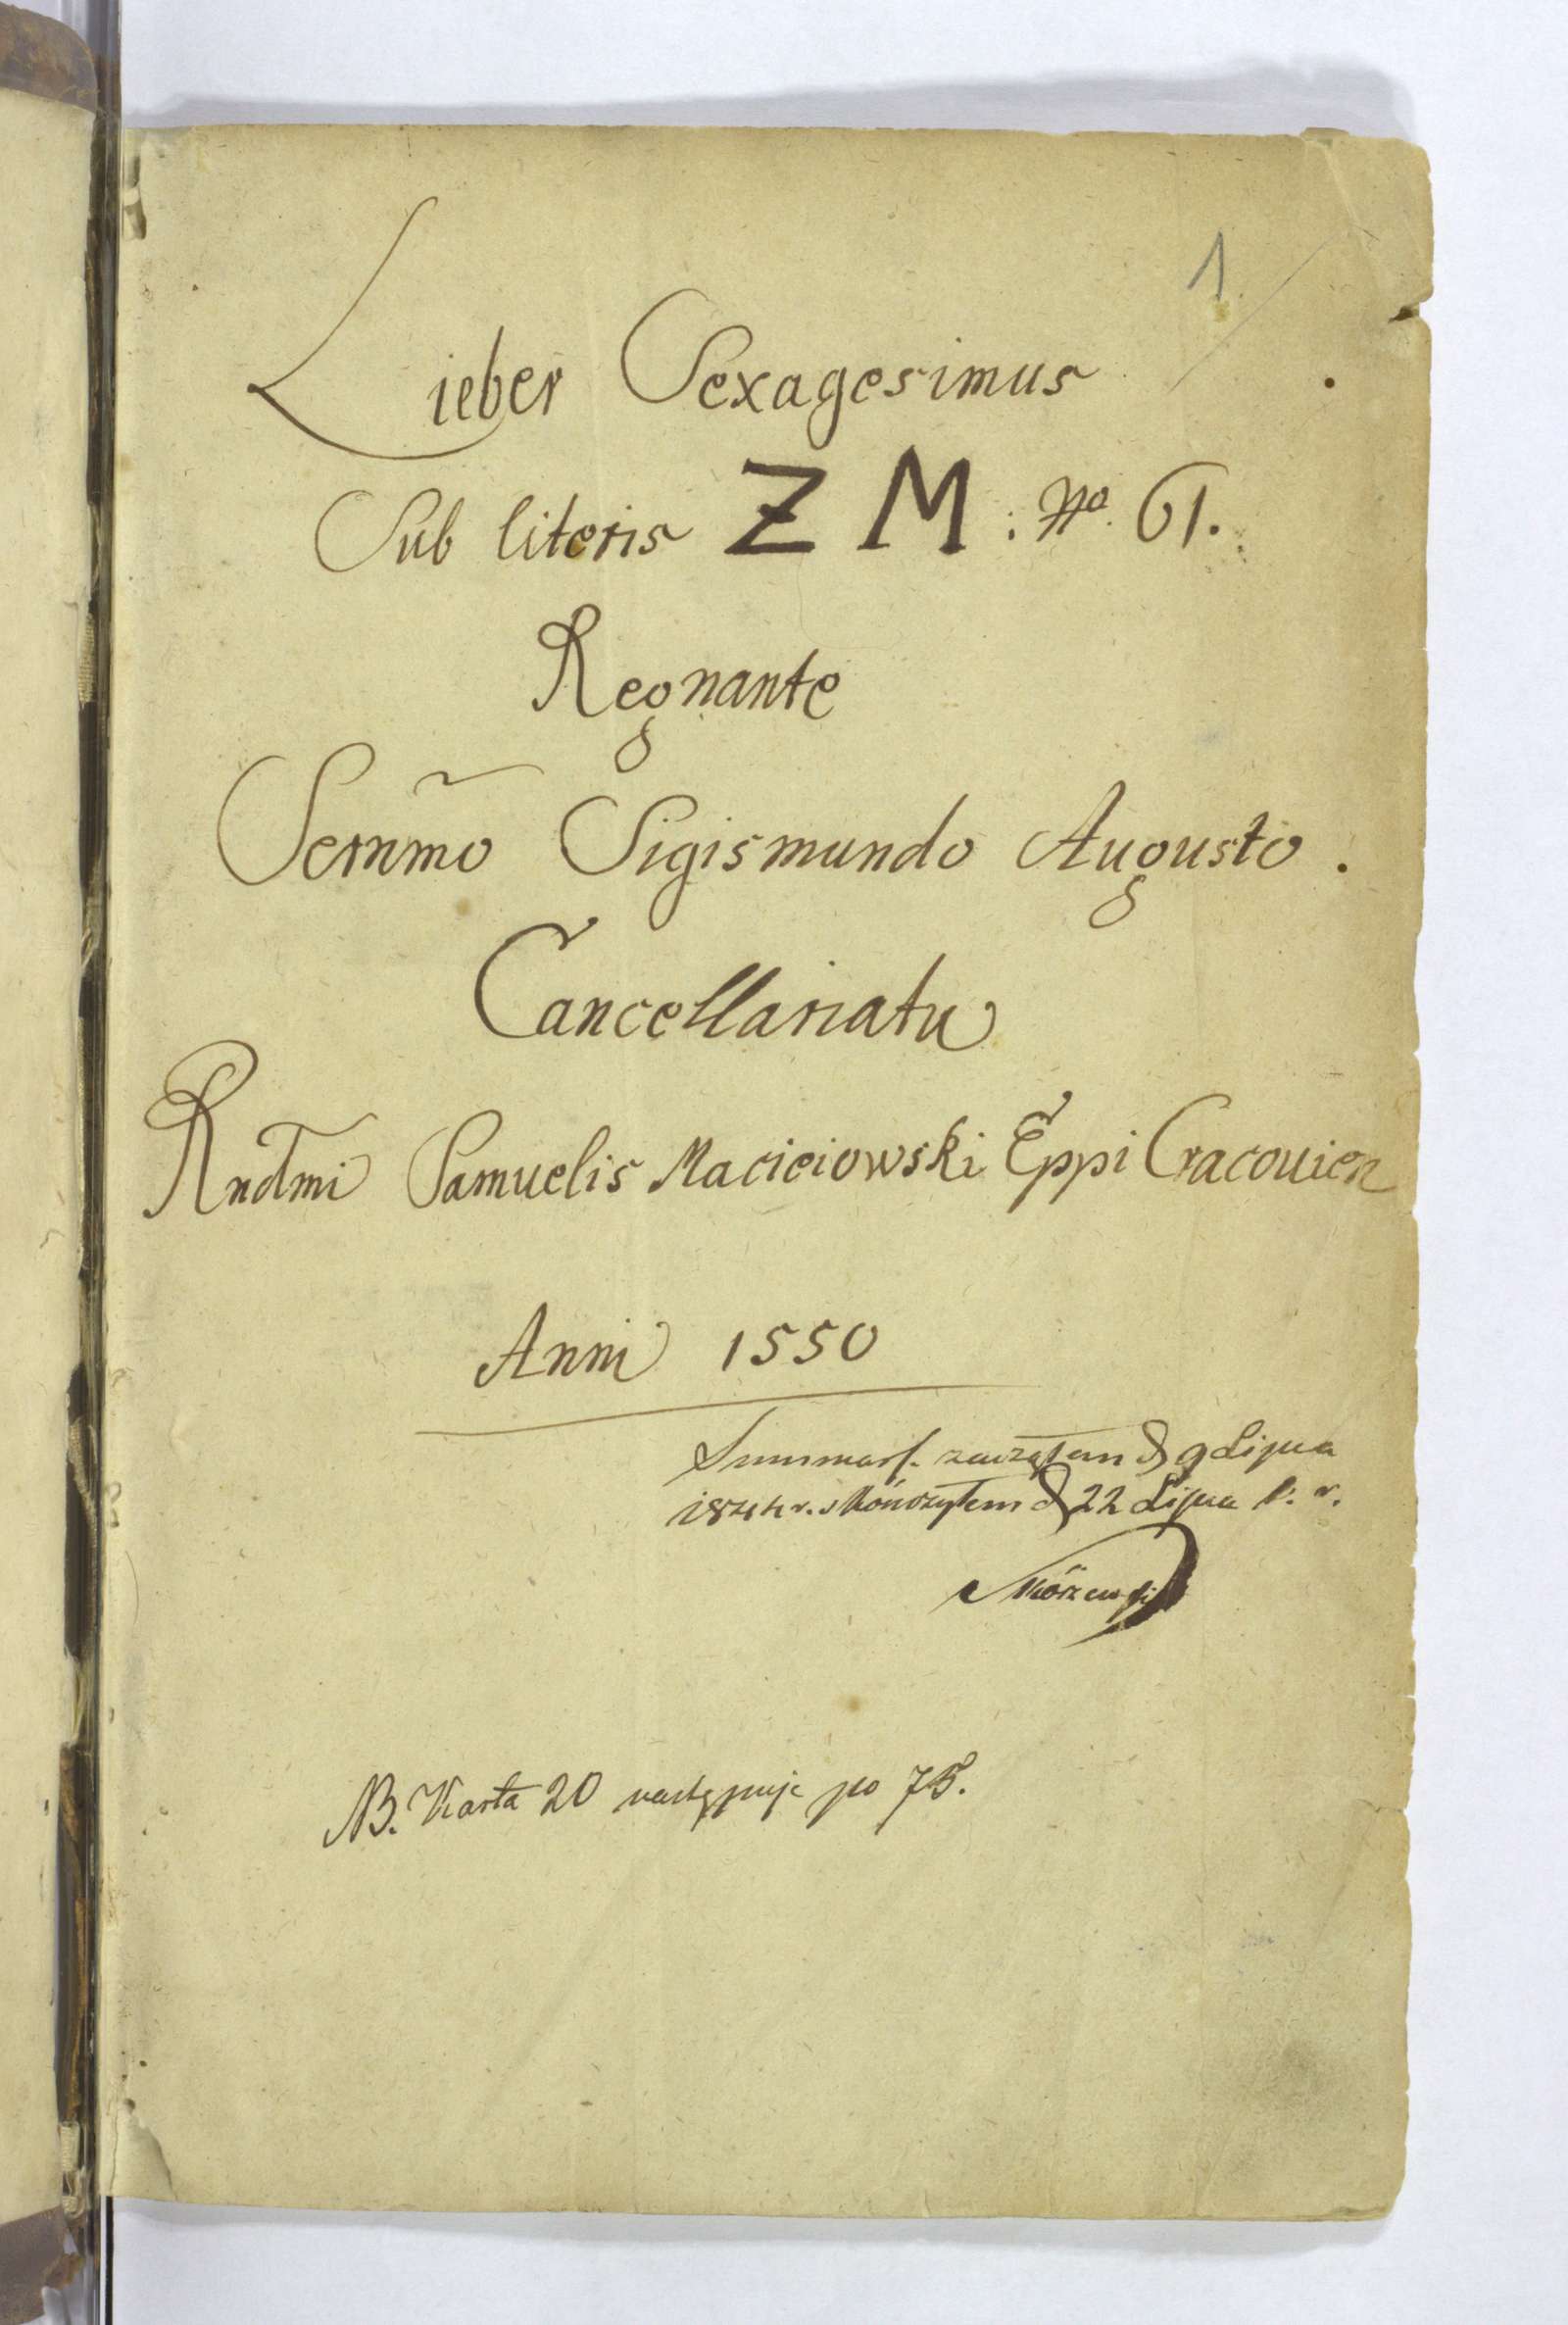 1
Lieber Sexagesimus
Sub literis Z M : No. 61.
Regnante
Sernmo Sigismundo Augusto.
Cancellariatu
Rndmi Samuelis Macieiowski Eppi Cracouien
Anni 1550
Summarj. zacząłem d 9 Lipca
r. skończyłem d 22 Lipca t. r.
NB. Karta 20 następuje po 75.